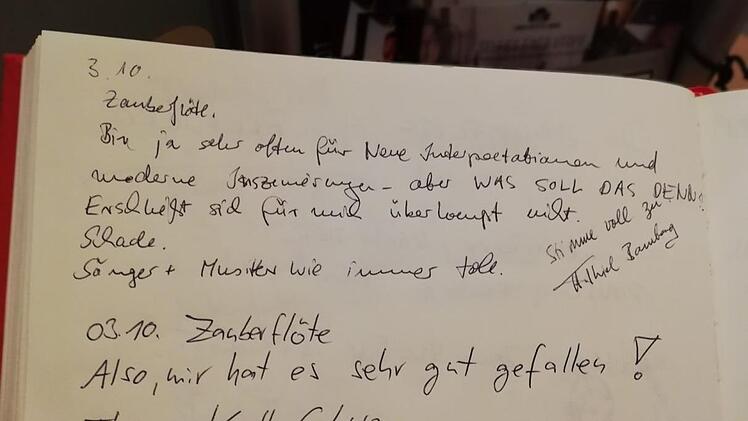 3.10.
Zauberflöte.
Bin ja sehr offen für Neue Interpretationen und
moderne Inszenierungen - aber WAS SOLL DAS DENN?
Erschließt sich für mich überhaupt nicht.
Schade.
Sänger + Musiker wie immer toll.
Stimme voll zu
Bamberg
03.10. Zauberflöte
Also, mir hat es sehr gut gefallen!